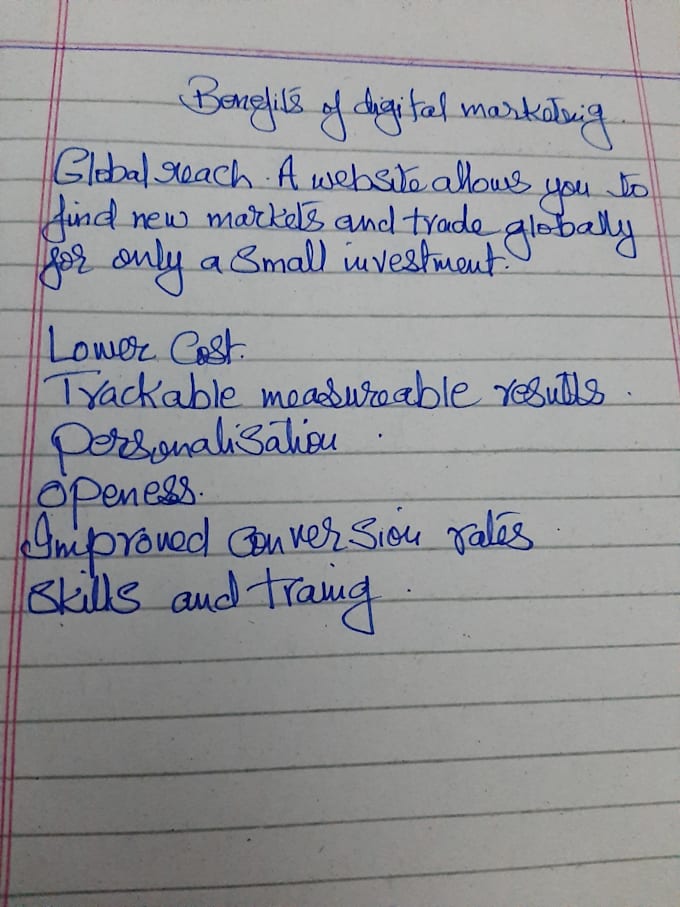 Benefits of digital marketing.
Global reach. A website allows you to
find new markets and trade globally
for only a small investment.
Lower Cost.
Trackable measureable results.
Personalisation.
Openess.
Improved conversion rates.
Skills and traing.